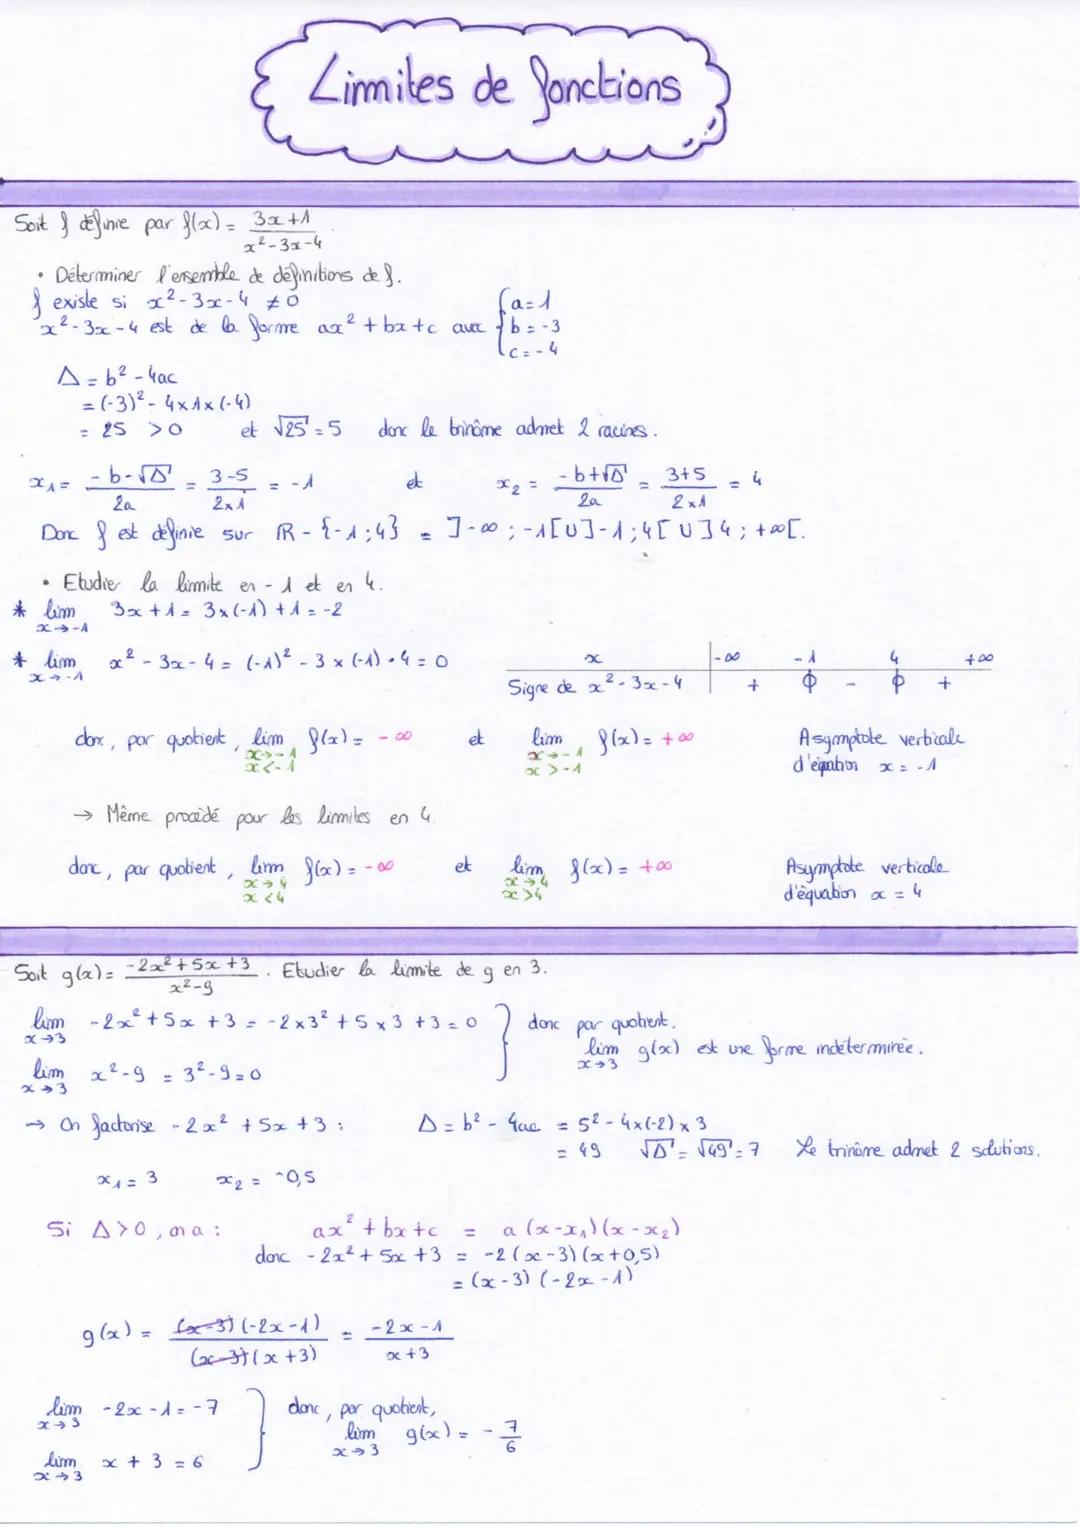 Limites de fonctions
Soit f définie par f(x) = (3x+1)/(x²-3x-4)
• Déterminer l'ensemble de définitions de f.
f existe si x²-3x-4 ≠ 0
x²-3x-4 est de la forme ax²+bx+c avec { a=1 b=-3 c=-4
Δ = b²-4ac
= (-3)²-4×1×(-4)
= 25 >0 et √25 = 5 donc le trinôme admet 2 racines.
x₁ = (-b-√Δ)/2a = (3-5)/(2×1) = -1 et x₂ = (-b+√Δ)/2a = (3+5)/(2×1) = 4
Donc f est définie sur ℝ-{-1;4} = ]-∞;-1[∪]-1;4[∪]4;+∞[.
• Etudier la limite en -1 et en 4.
* lim x→-1 3x+1 = 3×(-1)+1 = -2
* lim x→-1 x²-3x-4 = (-1)²-3×(-1)-4 = 0
x -∞ -1 4 +∞
Signe de x²-3x-4 + 0 - 0 +
donc, par quotient, lim x→-1 x<-1 f(x) = -∞ et lim x→-1 x>-1 f(x) = +∞ Asymptote verticale d'équation x = -1
→ Même procédé pour les limites en 4.
donc, par quotient, lim x→4 x<4 f(x) = -∞ et lim x→4 x>4 f(x) = +∞ Asymptote verticale d'équation x = 4
Soit g(x) = (-2x²+5x+3)/(x²-9). Etudier la limite de g en 3.
lim x→3 -2x²+5x+3 = -2×3²+5×3+3 = 0
lim x→3 x²-9 = 3²-9 = 0
} donc par quotient, lim x→3 g(x) est une forme indéterminée.
→ On factorise -2x²+5x+3 : Δ = b²-4ac = 5²-4×(-2)×3
= 49 √Δ = √49 = 7 Le trinôme admet 2 solutions.
x₁ = 3 x₂ = -0,5
Si Δ>0, on a : ax²+bx+c = a(x-x₁)(x-x₂)
donc -2x²+5x+3 = -2(x-3)(x+0,5)
= (x-3)(-2x-1)
g(x) = (x-3)(-2x-1)/(x-3)(x+3) = (-2x-1)/(x+3)
lim x→3 -2x-1 = -7
lim x→3 x+3 = 6
} donc, par quotient, lim x→3 g(x) = -7/6